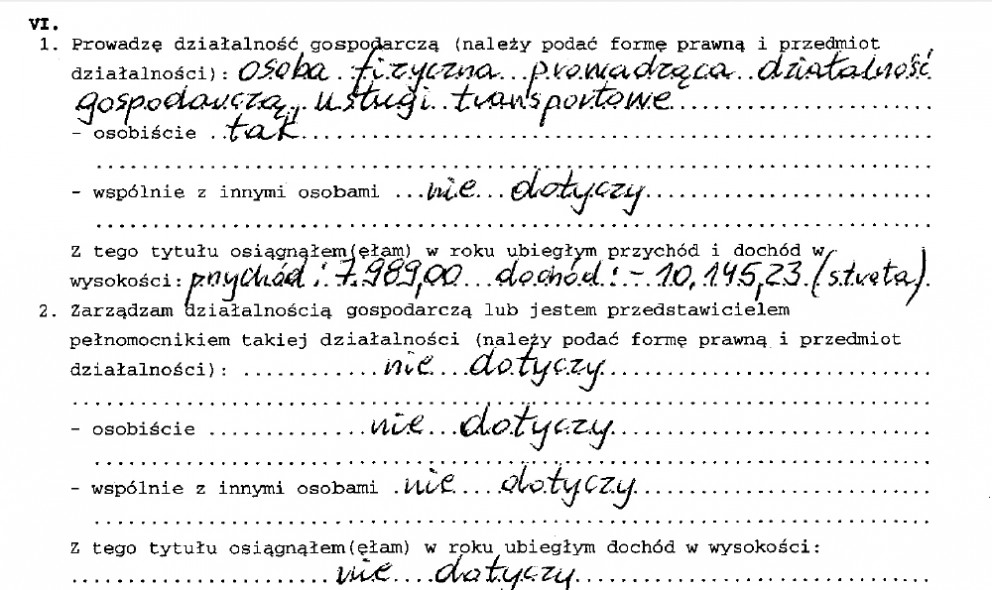 VI.
1. Prowadzę działalność gospodarczą (należy podać formę prawną i przedmiot
działalności): osoba fizyczna prowadząca działalność
gospodarczą, usługi transportowe
- osobiście tak
- wspólnie z innymi osobami nie dotyczy
Z tego tytułu osiągnąłem(ęłam) w roku ubiegłym przychód i dochód w
wysokości: przychód: 7.989,00 dochód: -10.145,23 (strata).
2. Zarządzam działalnością gospodarczą lub jestem przedstawicielem
pełnomocnikiem takiej działalności (należy podać formę prawną i przedmiot
działalności): nie dotyczy
- osobiście nie dotyczy
- wspólnie z innymi osobami nie dotyczy
Z tego tytułu osiągnąłem(ęłam) w roku ubiegłym dochód w wysokości:
nie dotyczy